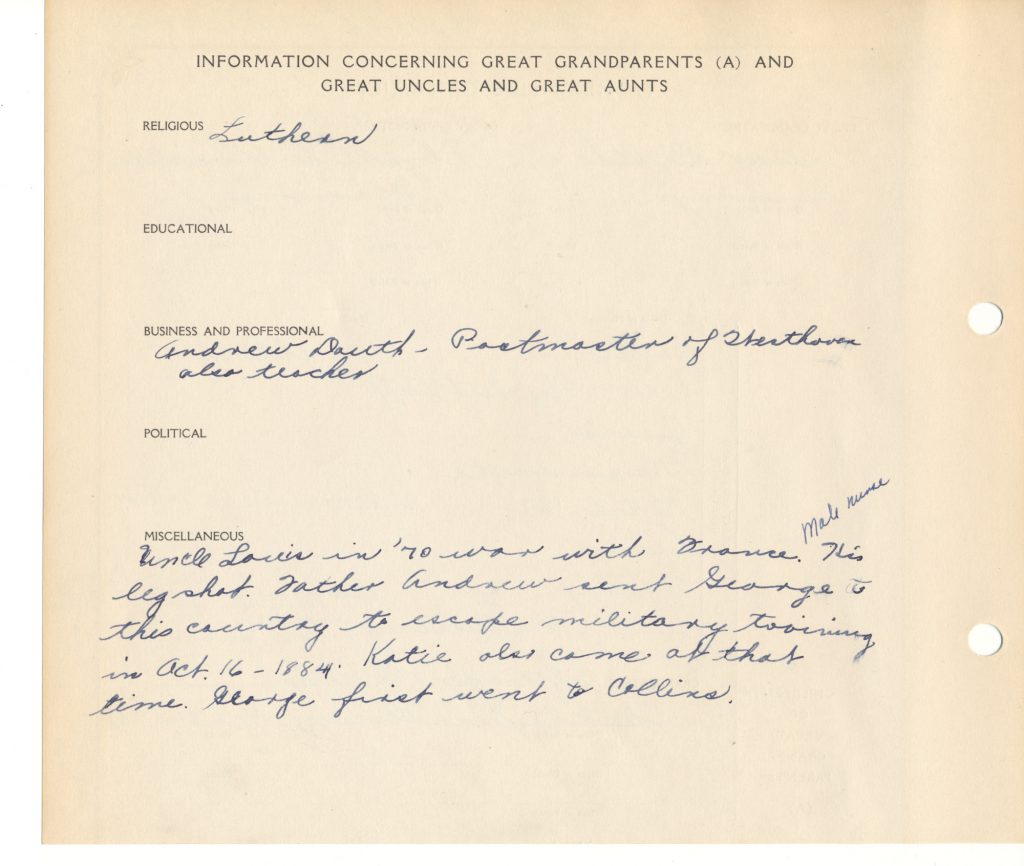 INFORMATION CONCERNING GREAT GRANDPARENTS (A) AND
GREAT UNCLES AND GREAT AUNTS
RELIGIOUS Luthern
EDUCATIONAL
BUSINESS AND PROFESSIONAL
Andrew Dauth - Postmaster of Westhoven
also teacher
POLITICAL
Male nurse
MISCELLANEOUS
Uncle Louis in '70 war with France. His
leg shot. Father Andrew sent George to
this country to escape military training
in Oct. 16 - 1884. Katie also came at that
time. George first went to Collins.